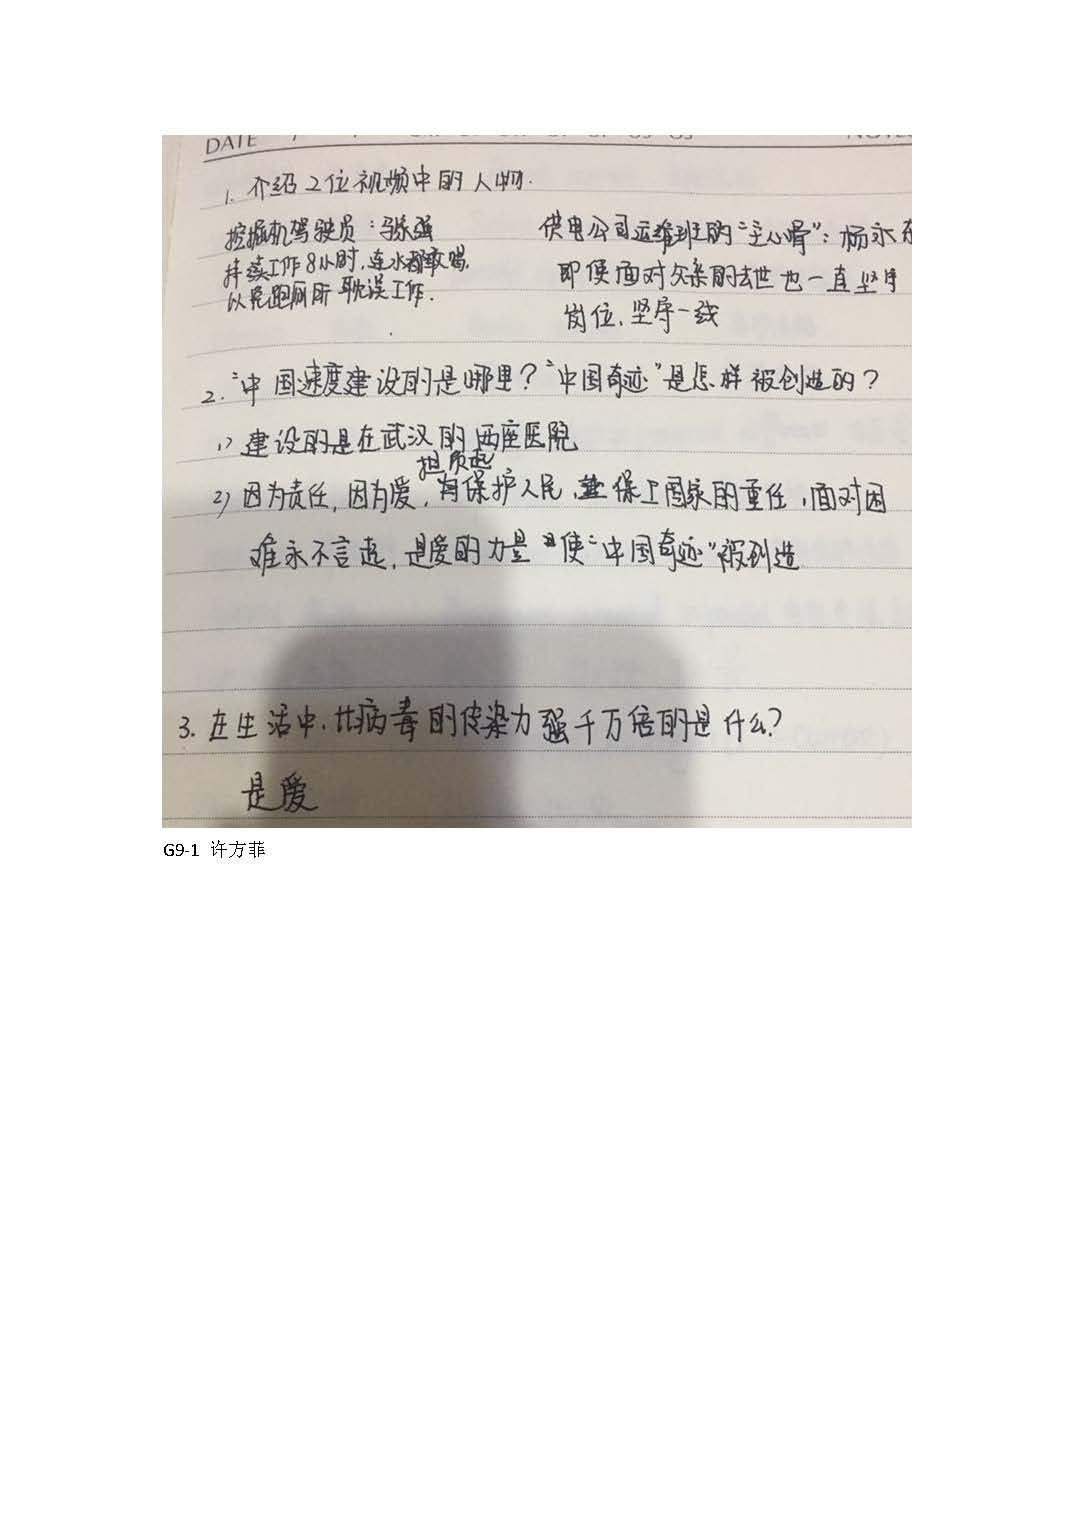 DATE
1. 介绍2位视频中的人物.
挖掘机驾驶员：马永强
持续工作8小时,连水都敢喝,
以免跑厕所耽误工作.
供电公司运维班的"主心骨"：杨永
即使面对父亲的去世也一直坚守
岗位,坚守一线
2."中国速度建设的是哪里？"中国奇迹"是怎样被创造的？
1)建设的是在武汉的两座医院
担负起
2)因为责任,因为爱,保护人民,保卫国家的重任,面对困
难永不言起,是爱的力量 使"中国奇迹"被创造
3.在生活中,比病毒的传染力强千万倍的是什么?
是爱
G9-1 许方菲